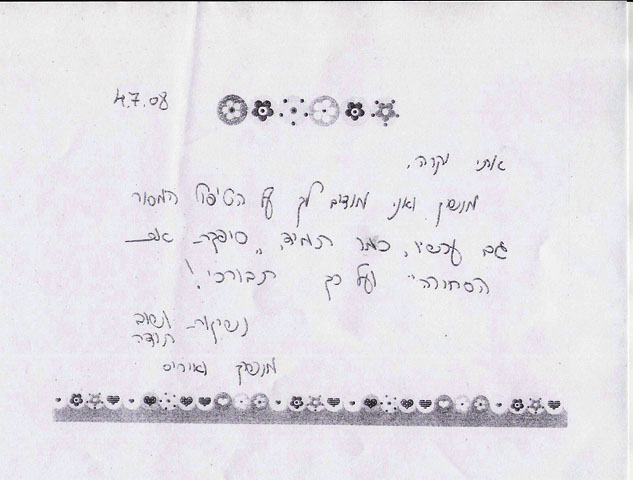 4.7.08
אתי יקרה,
מונשק ואני מודים לך על הטיפול המסור
גם עכשיו, כמו תמיד, "סיפקת את
הסחורה" ועל כך תבורכי!
נשיקות ושוב
תודה
מונשק ואיריס